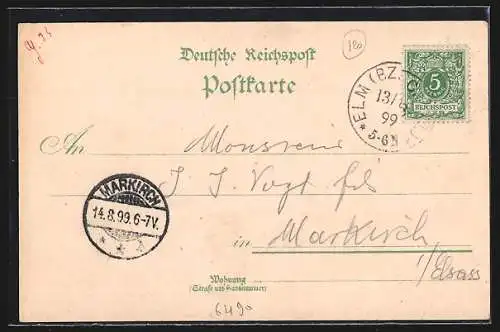 Deutsche Reichspost
Postkarte
ELM (BZ.
13/8
99
5-6N
5
REICHSPOST
An Monsieur
J. J. Vogt fils
in Markirch
i/Elsass
MARKIRCH
14.8.99.6-7V.
Wohnung
(Straße und Hausnummer)
6490